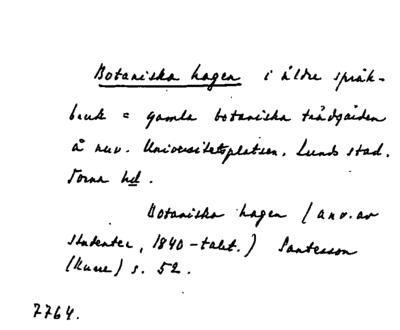 Botaniska hagen i äldre språk-
bruk = gamla botaniska trädgården
å nuv. Universitetsplatsen, Lunds stad.
Torna hd.
Botaniska hagen (anv. av
studenter, 1840-talet.) Santesson
s. 52.
7764.